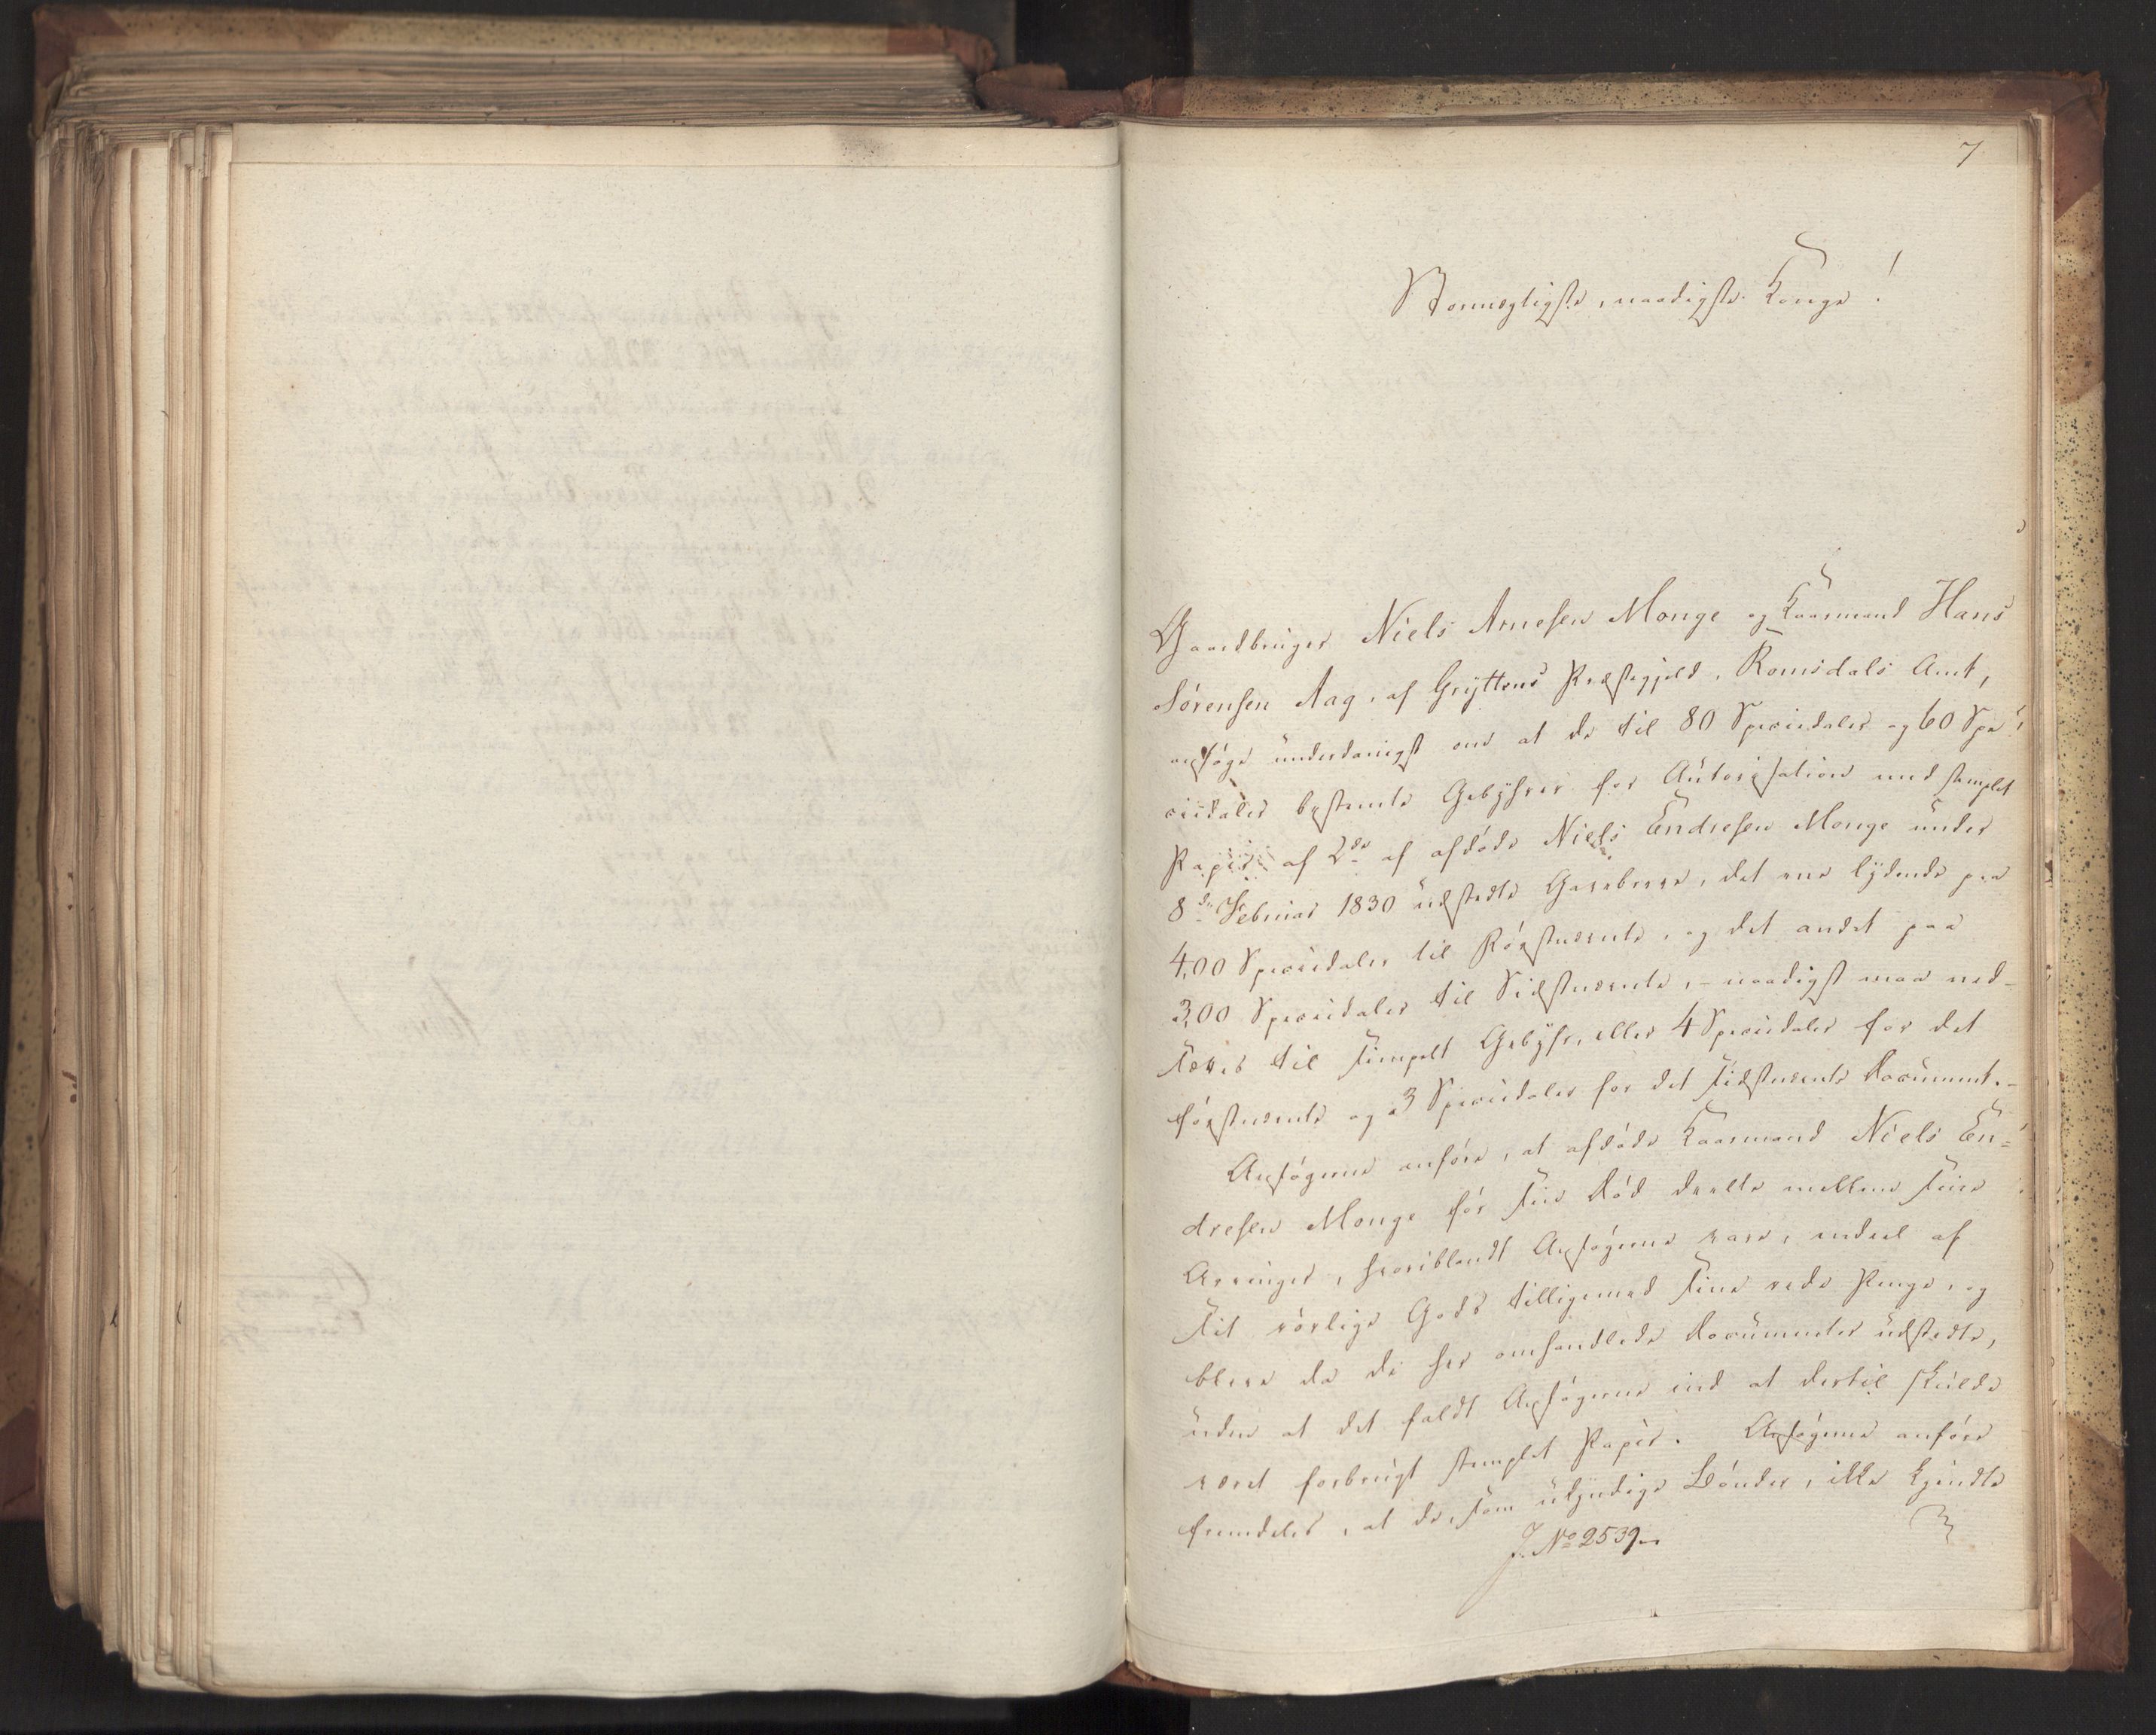 7
Stormægtigste, naadigste Konge!
Gaardbruger Niels Arnesen Monge og Kaarmand Hans
Sørensen Aag, af Gryttens Præstegjeld, Romsdals Amt,
ansøge underdanigst om at de til 80 Speciedaler og 60 Spe-
ciedaler bestemte Gebyhrer for Autorisation med stemplet
Papir af 2de af afdøde Niels Endresen Monge under
8de Februar 1830 udstedte Gavebreve, det ene lydende paa
400 Speciedaler til Førstnævnte, og det andet paa
300 Speciedaler til Sidstnævnte, - naadigst maa ned-
sættes til simpelt Gebyhr, eller 4 Speciedaler for det
førstnævnte og 3 Speciedaler for det sidstnævnte Document.-
Ansøgerne anføre, at afdøde Kaarmand Niels En-
dresen Monge før sin Død deelte mellem sine
Arvinger, hvoriblandt Ansøgerne vare, endeel af
sit rørlige Gods tilligemed sine rede Penge, og
bleve da de her omhandlede Documenter udstedte,
uden at det faldt Ansøgerne ind at dertil skulde
været forbrugt stemplet Papir. Ansøgerne anføre
fremdeles, at de, som ukyndige Bønder, ikke kjendte
J. No 2539.